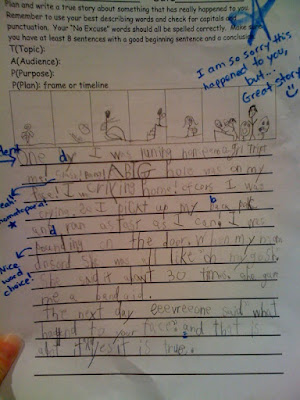 Plan and write a true story about something that has really happened to you.
Remember to use your best describing words and check for capitals and
punctuation. Your "No Excuse" words should all be spelled correctly. Make sure
you have at least 8 sentences with a good beginning sentence and a conclusion.
T(Topic):
A(Audience):
P(Purpose):
P(Plan): frame or timeline
I am so sorry this
happened to you,
but...
Great Story!
One day I was runing
me! A BIG hole was on my
I was criying home! I was
criying. So I pickt up my back pack
and ran as fast as I can! I was
pounding on the door. When my mom
she was all like oh my gosh.
She said it about 30 times. she gave
me a band aid.
The next day eeevreeone said "what
to your face? and that is
it. Yes it is true.
Yeah!
onomatopoeia!
Nice
word
choice!